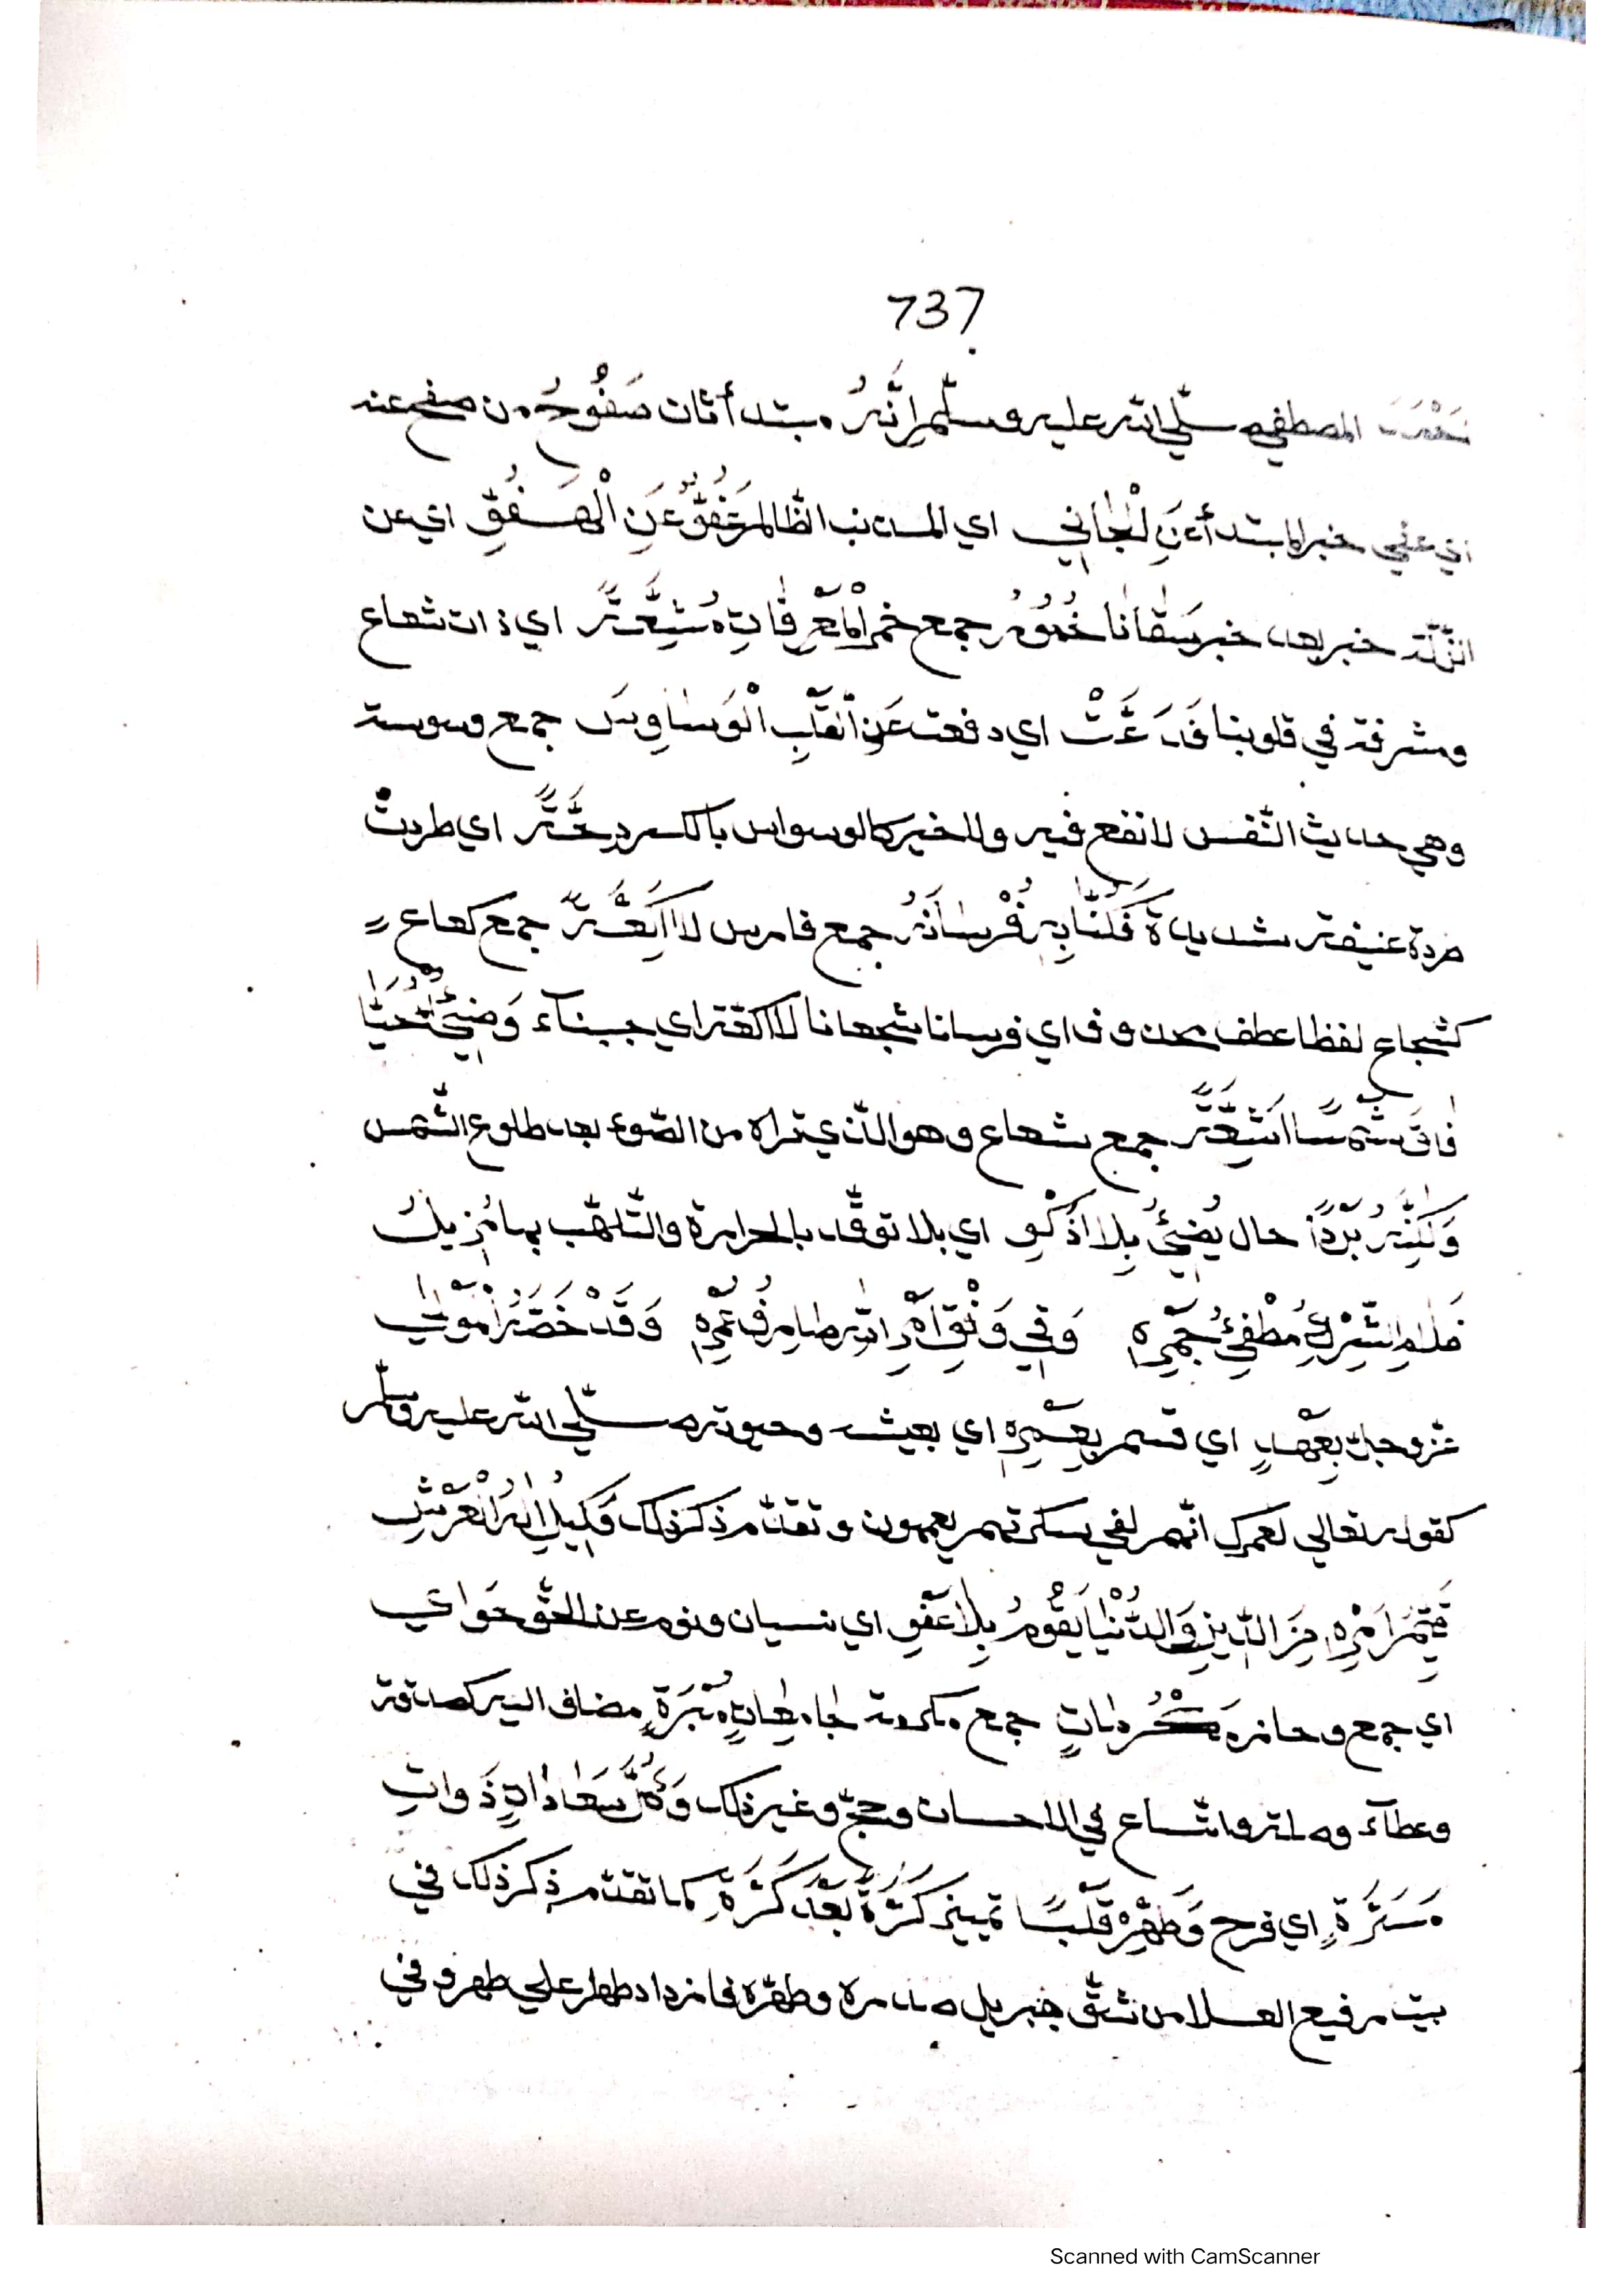 737
المصطفي صلّي الله عليه وسلّم اِنَّهُ مبتدأ ثان صَفُوحُ من صفح عنه
اي عفي خبر المبتدأ عَنِ الْجَانِي اي المذنب الظّالم عَفُوٌّ عَنِ الْهَفْوِ اي عن
الزّلّة خبر بعد خبر سَقَانَا خُمُورُ جمع خمر الْمَعْرِفَاتِ مُشِعَّةً اي ذات شعاع
ومشرقة في قلوبنا فَدَعَّتْ اي دفعت عَنِ الْقَلْبِ الْوَسَاوِسَ جمع وسوسة
وهي حديث النّفس لا نفع فيه ولا خير كالوسواس بالكسر دِعَّةً اي طردت
طردة عنيفة شديدة فَكُنَّا بِهِ فُرْسَانَهُ جمع فارس لَا اَكِعَّةً جمع كعاع
كشجاع لفظا عطف محذوف اي فرسانا شجعانا لا اكعّة اي جبناء وَضِيْئُ مُحَيَّا
فَاقَ شَمْسًا اَشِعَّةً جمع شعاع وهو الّذي تراه من الضّوء بعد طلوع الشّمس
وَلَكِنَّهُ بَرْدًا حال يُضِيْئُ بِلَا اَذْكُو اي بلا توقّد بالحرارة والتّلهّب بها مُزِيلُ
ظَلَامِ الشِّرْكِ مُطْفِئُ جَمْرِهِ وَفِي وَثْقِ اَمْرِ اللهِ صَارِفُ عُمْرِهِ وَقَدْ خَصَّهُ الْمَوْلَي
عزّ وجلّ بِعَهْدٍ اي قسم بِعَمْرِهِ اي بعيشه وحيوته صلّي الله عليه وسلّم
كقوله تعالي لعمرك انّهم لفي سكرتهم يعمهون وتقدّم ذكر ذلك وَكِيْلُ اِلَهِ الْعَرْشِ
قَيِّمُ اَمْرِهِ مِنَ الدِّيْنِ وَالدُّنْيَا يَقُومُ بِلَا غَفْوِ اي نسيان ونوم عن الحقّ حَوَي
اي جمع وحاز مَكْرُمَاتٍ جمع مكرمة جَامِعَاتٍ مَبَرَّةٍ مضاف اليه كصدقة
وعطاء وصلة واتّساع في الاحسان وحجّ وغير ذلك وَكُلَّ سَعَادَاتٍ ذَوَاتِ
مَسَرَّةٍ اي فرح وَطَهِّرْهُ قَلْبًا تمييز كَرَّةً بَعْدَ كَرَّةٍ كما تقدّم ذكر ذلك في
بيت رفيع العلا من شقّ جبريل صدره وطهّره فازداد طهر علي طهر وفي
Scanned with CamScanner